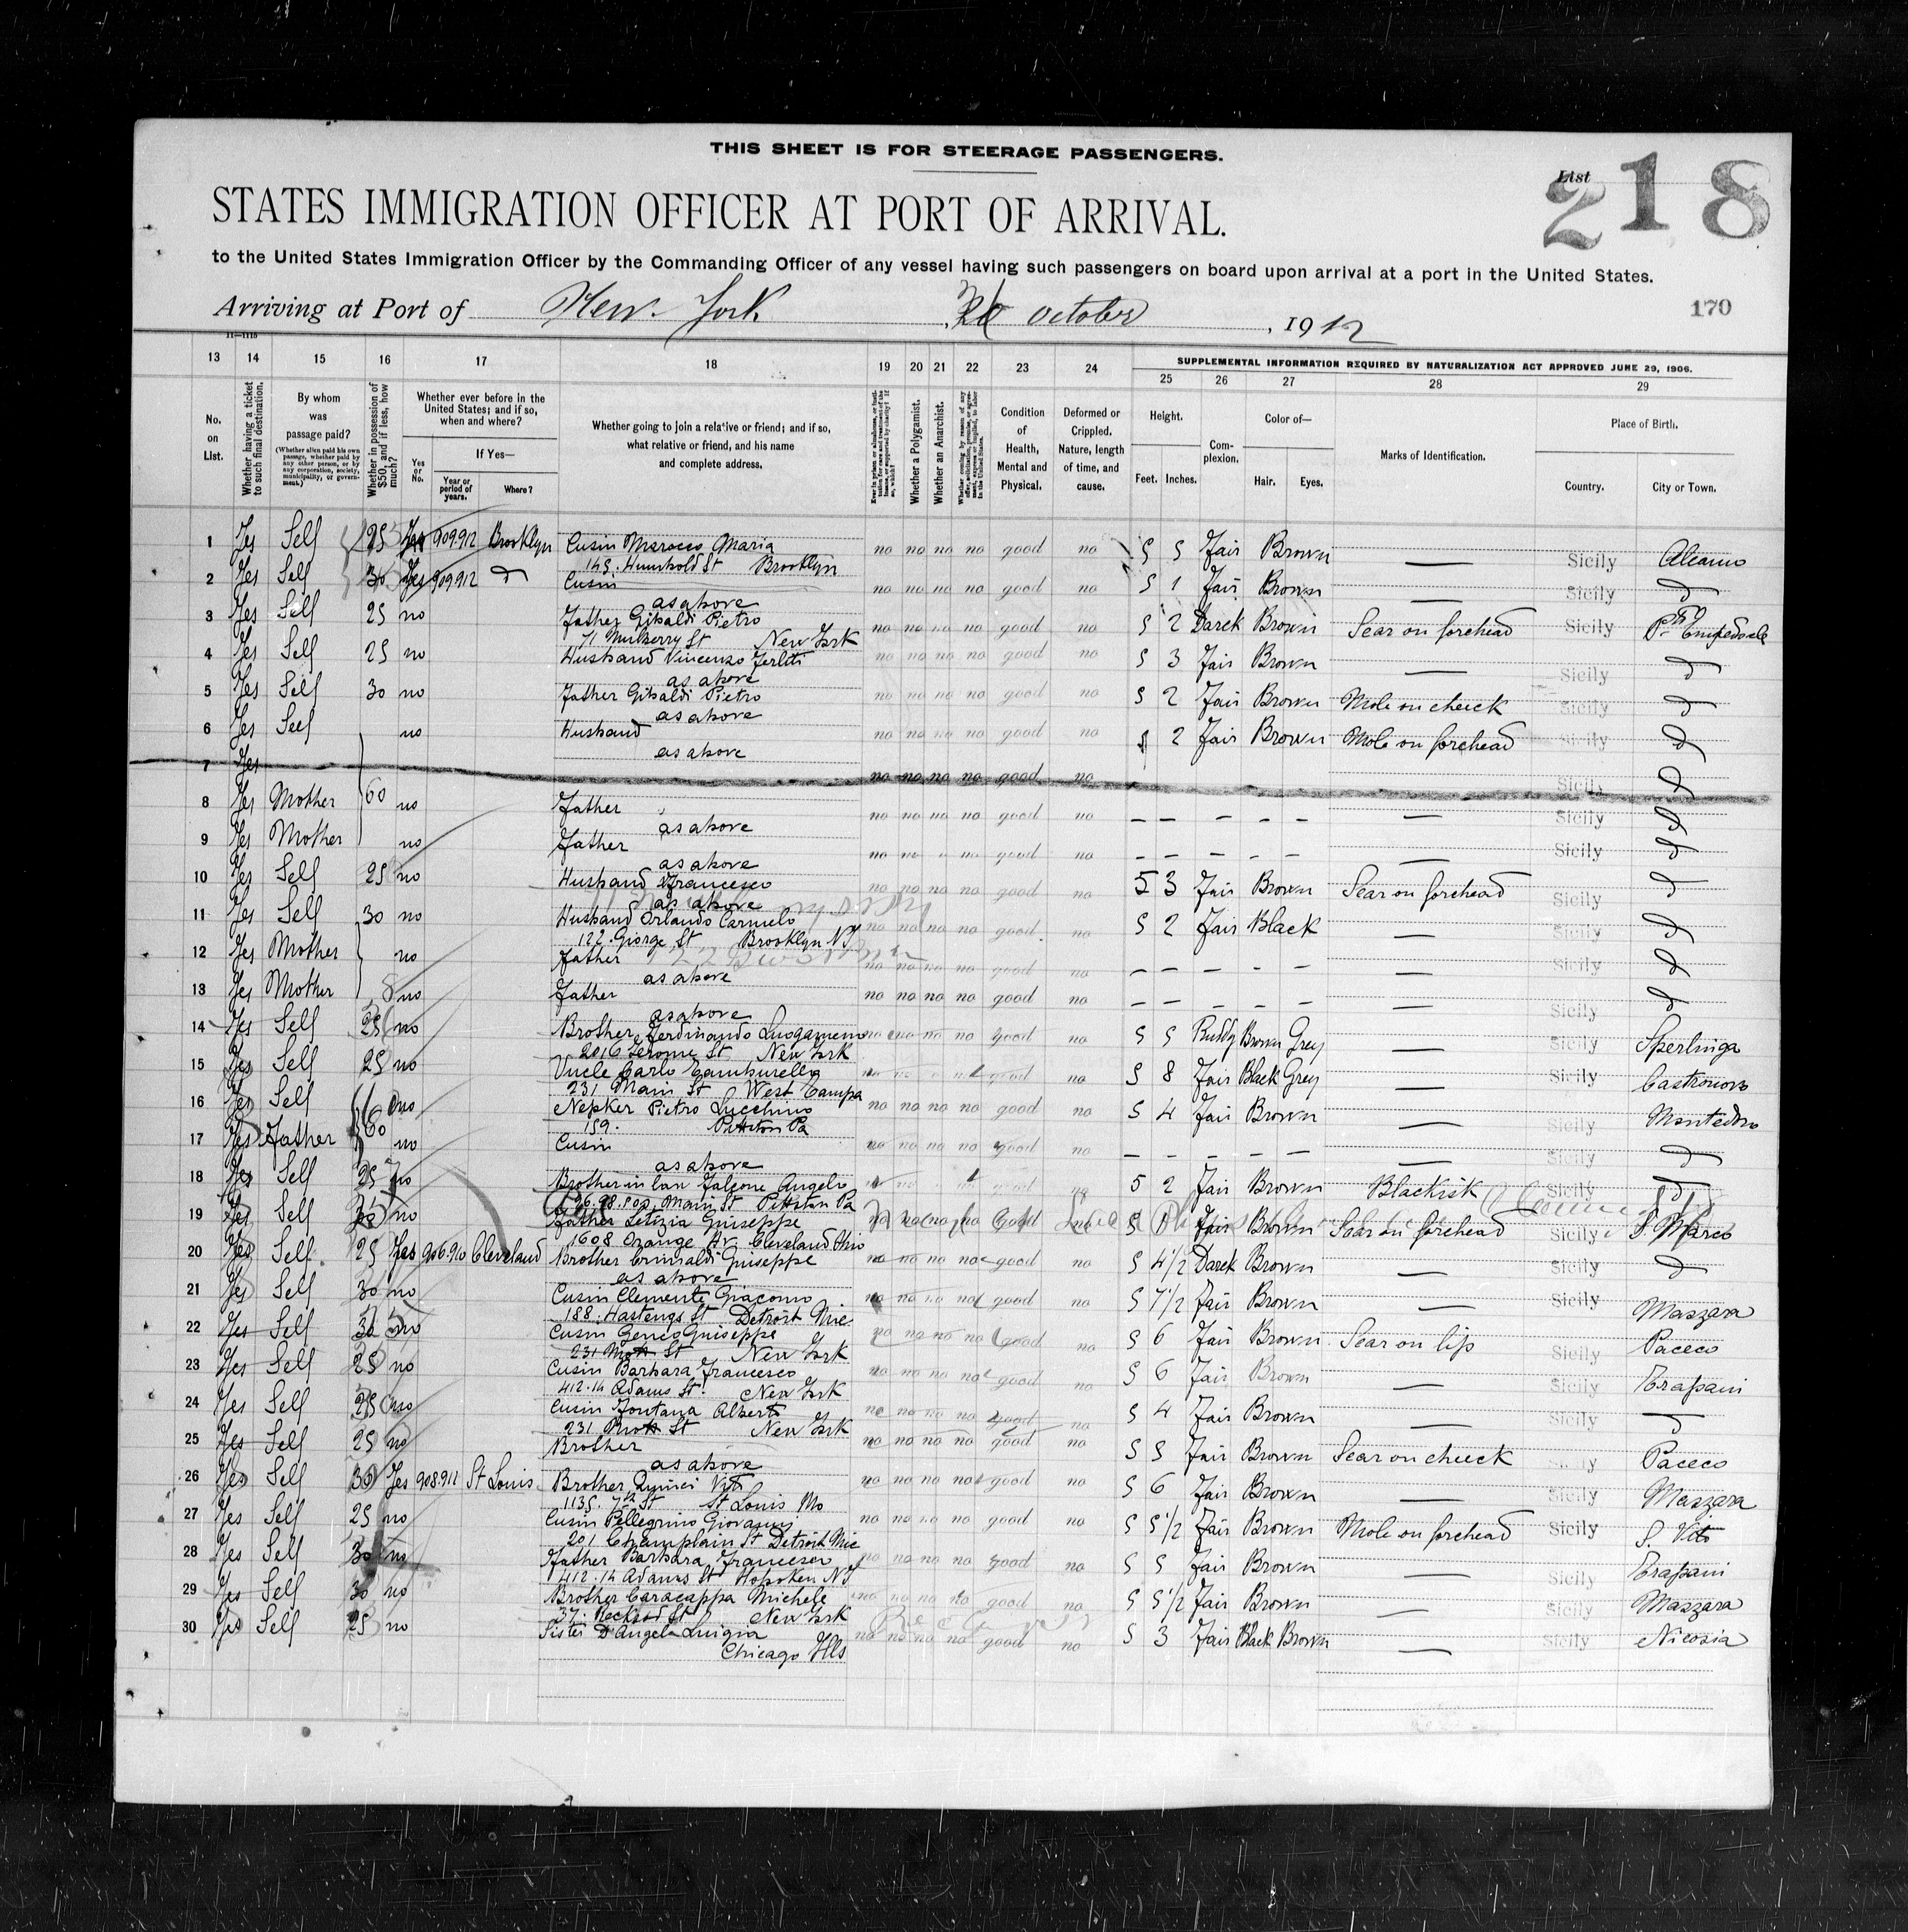 THIS SHEET IS FOR STEERAGE PASSENGERS.
List
218
STATES IMMIGRATION OFFICER AT PORT OF ARRIVAL.
to the United States Immigration Officer by the Commanding Officer of any vessel having such passengers on board upon arrival at a port in the United States.
Arriving at Port of New York October, 1912
170
11—1115
SUPPLEMENTAL INFORMATION REQUIRED BY NATURALIZATION ACT APPROVED JUNE 29, 1906.
13 14 15 16 17 18 19 20 21 22 23 24 25 26 27 28 29
No. on List.
Whether having a ticket to such final destination.
By whom was passage paid?
(Whether alien paid his own passage, whether paid by any other person, or by any corporation, society, municipality, or government.)
Whether in possession of $50, and if less, how much?
Whether ever before in the United States; and if so, when and where?
Yes or No.
If Yes—
Year or period of years.
Where?
Whether going to join a relative or friend; and if so, what relative or friend, and his name and complete address.
Whether a Polygamist.
Whether an Anarchist.
Condition of Health, Mental and Physical.
Deformed or Crippled. Nature, length of time, and cause.
Height.
Feet. Inches.
Complexion.
Color of—
Hair. Eyes.
Marks of Identification.
Place of Birth.
Country. City or Town.
1 Yes Self 25 Yes 909912 Brooklyn Cusin Marocco Maria no no no no good no 5 5 Fair Brown — Sicily Alcamo
145. Humbold St Brooklyn
2 Yes Self 30 Yes 909912 d Cusin no no no no good no 5 1 Fair Brown — Sicily d
as above
3 Yes Self 25 no Father Gibaldi Pietro no no no no good no 5 2 Darck Brown Scar on forehead Sicily Pto Empedocle
71 Mulberry St New York
4 Yes Self 25 no Husband Vincenzo Ferlitti no no no no good no 5 3 Fair Brown — Sicily d
as above
5 Yes Self 30 no Father Gibaldi Pietro no no no no good no 5 2 Fair Brown Mole on cheick Sicily d
as above
6 Yes Self no Husband no no no no good no 5 2 Fair Brown Mole on forehead Sicily d
as above
7 Yes no no no no good no Sicily d
8 Yes Mother 60 no Father no no no no good no — — — — — — Sicily d
as above
9 Yes Mother no Father no no no no good no — — — — — — Sicily d
as above
10 Yes Self 25 no Husband Francesco no no no no good no 5 3 Fair Brown Scar on forehead Sicily d
as above
11 Yes Self 30 no Husband Orlando Carmelo no no no no good no 5 2 Fair Black — Sicily d
122. Giorge St Brooklyn NY
12 Yes Mother no Father no no no no good no — — — — — — Sicily d
as above
13 Yes Mother no Father no no no no good no — — — — — — Sicily d
as above
14 Yes Self 25 no Brother Ferdinando no no no no good no 5 5 Ruddy Brown Grey — Sicily Sperlinga
2016 Jerome St New York
15 Yes Self 25 no Uncle Carlo no good no 5 8 Fair Black Grey — Sicily Castronovo
231 Main St West Tampa
16 Yes Self no Nepker Pietro Lucchino no no no no good no 5 4 Fair Brown — Sicily Montedoro
159. Pittston Pa
17 Yes Father 60 no Cusin no no no no good no — — — — — — Sicily d
as above
18 Yes Self 25 no Brother in law Falcone Angelo no 5 2 Fair Brown Sicily d
Main St Pittston Pa
19 Yes Self no Father Letizia Giuseppe no no no no good no 5 1 Fair Brown Scar on forehead Sicily S. Marco
1608 Orange Av. Cleveland Ohio
20 Yes Self 25 Yes 906910 Cleveland Brother Grimaldi Giuseppe no no no no good no 5 4 1/2 Darck Brown — Sicily d
as above
21 Yes Self 30 no Cusin Clemente Giacomo no no no no good no 5 7 1/2 Fair Brown — Sicily Mazzara
188. Hastengs St Detroit Mic
22 Yes Self 30 no Cusin Genco Guiseppe no no no no good no 5 6 Fair Brown Scar on lip Sicily Paceco
231 Mott St New York
23 Yes Self 25 no Cusin Barbara Francesco no no no no good no 5 6 Fair Brown — Sicily Trapani
412.14 Adams St. New York
24 Yes Self 25 no Cusin Fontana Alberto no no no no good no 5 4 Fair Brown — Sicily d
231 Mott St New York
25 Yes Self 25 no Brother no no no no good no 5 5 Fair Brown Scar on cheick Paceco
as above
26 Yes Self 30 Yes 908911 St Louis Brother Quinci Vito no no no no good no 5 6 Fair Brown — Sicily Mazzara
1135. 7th St St Louis Mo
27 Yes Self 25 no Cusin Pellegrino Giovanni no no no no good no 5 5 1/2 Fair Brown Mole on forehead Sicily S. Vito
201 Champlain St Detroit Mic
28 Yes Self 30 no Father Barbara Francesco no no no no good no 5 5 Fair Brown — Sicily Trapani
412.14 Adams St Hoboken NJ
29 Yes Self 30 no Brother Caracappa Michele no no no no good no 5 5 1/2 Fair Brown — Sicily Mazzara
37. St New York
30 Yes Self 25 no Sister D'Angelo Luigia no no no no good no 5 3 Fair Black Brown — Sicily Nicosia
Chicago Ills